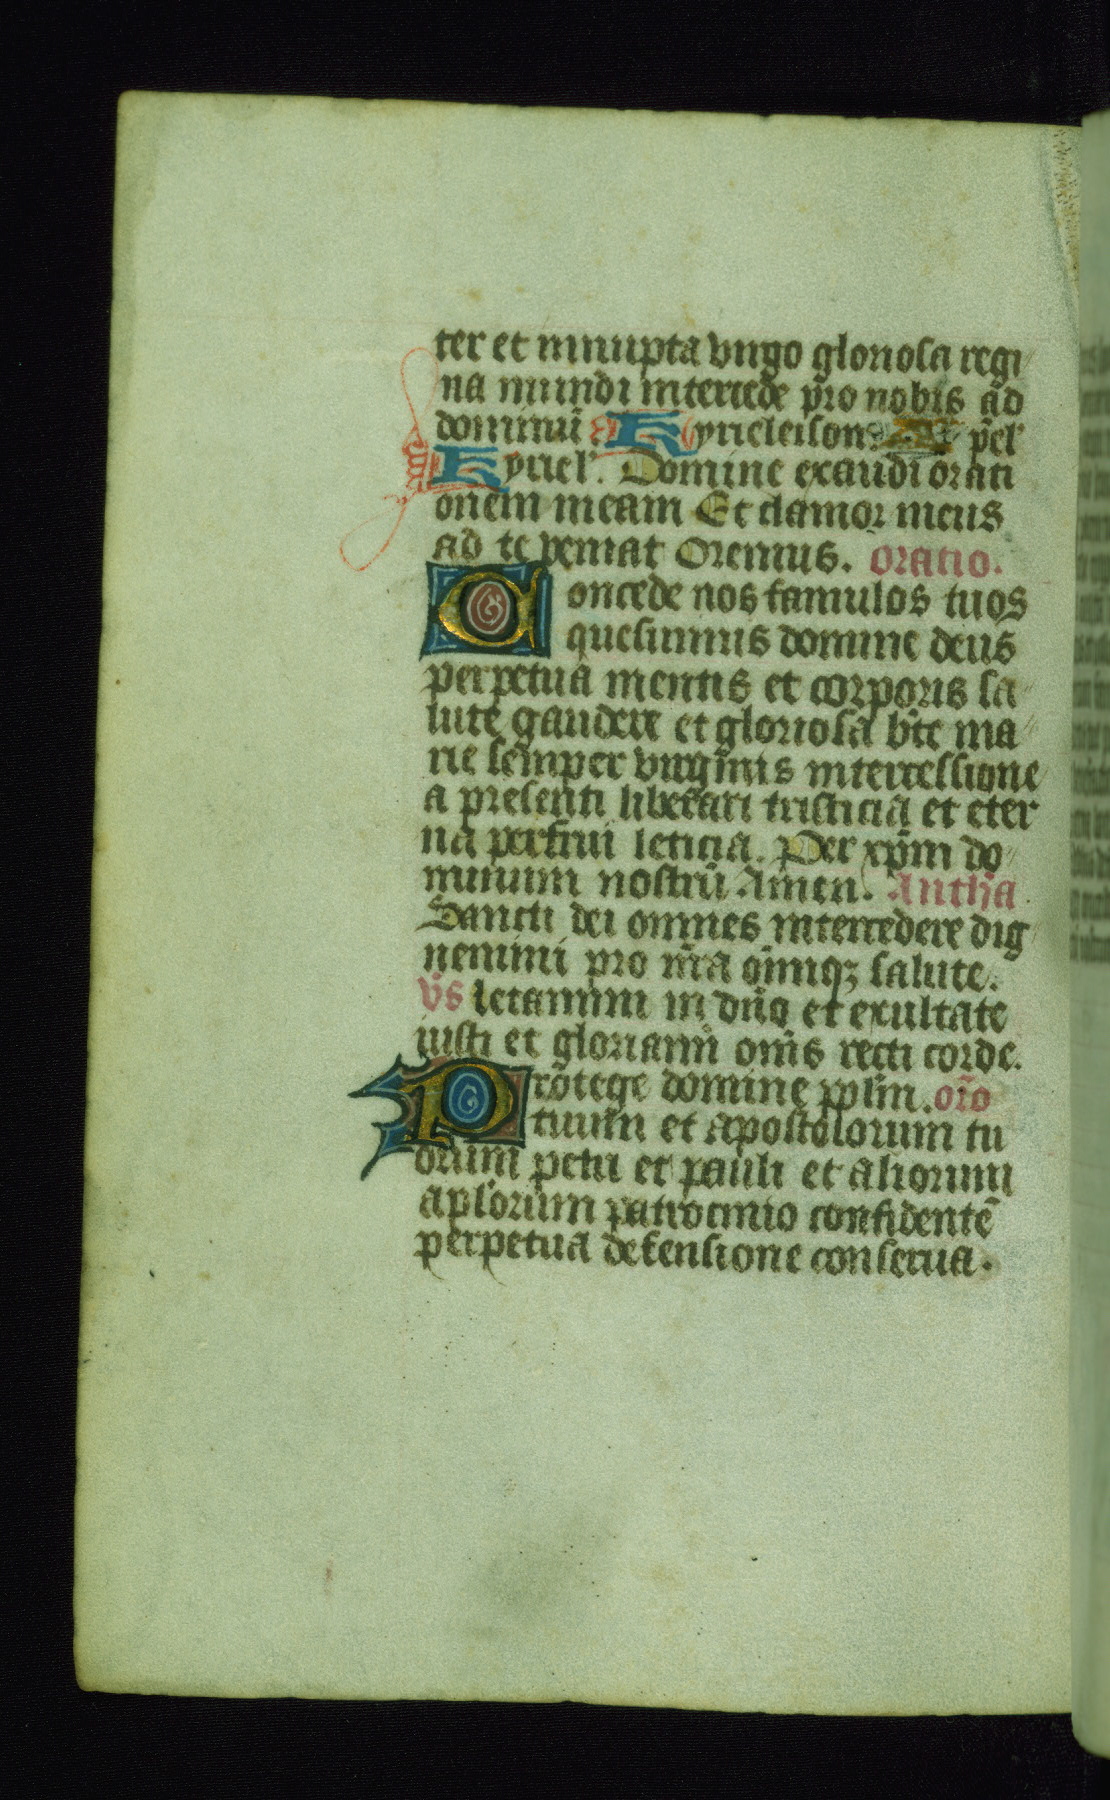 ter et innupta virgo gloriosa regi
na mundi intercede pro nobis ad
dominū Kyrieleison. xp̄el'
Kyriel'. Domine exaudi orati
onem meam Et clamor meus
ad te veniat Oremus. oratio.
Concede nos famulos tuos
quesumus domine deus
perpetua mentis et corporis sa
lute gaudere et gloriosa bt̄e ma
rie semper virginis intercessione
a presenti liberari tristicia et eter
na perfrui leticia. Per xp̄m do
minum nostrū Amen. Antha
Sancti dei omnes intercedere dig
nemini pro nr̄a om̄iūqꝫ salute.
v̄s letamini in dn̄o et exultate
iusti et gloriamī om̄s recti corde.
Protege domine ppl̄m. or̄o
tuum et apostolorum tu
orum petri et pauli et aliorum
apl'orum patrocinio confidentē
perpetua defensione conserua.